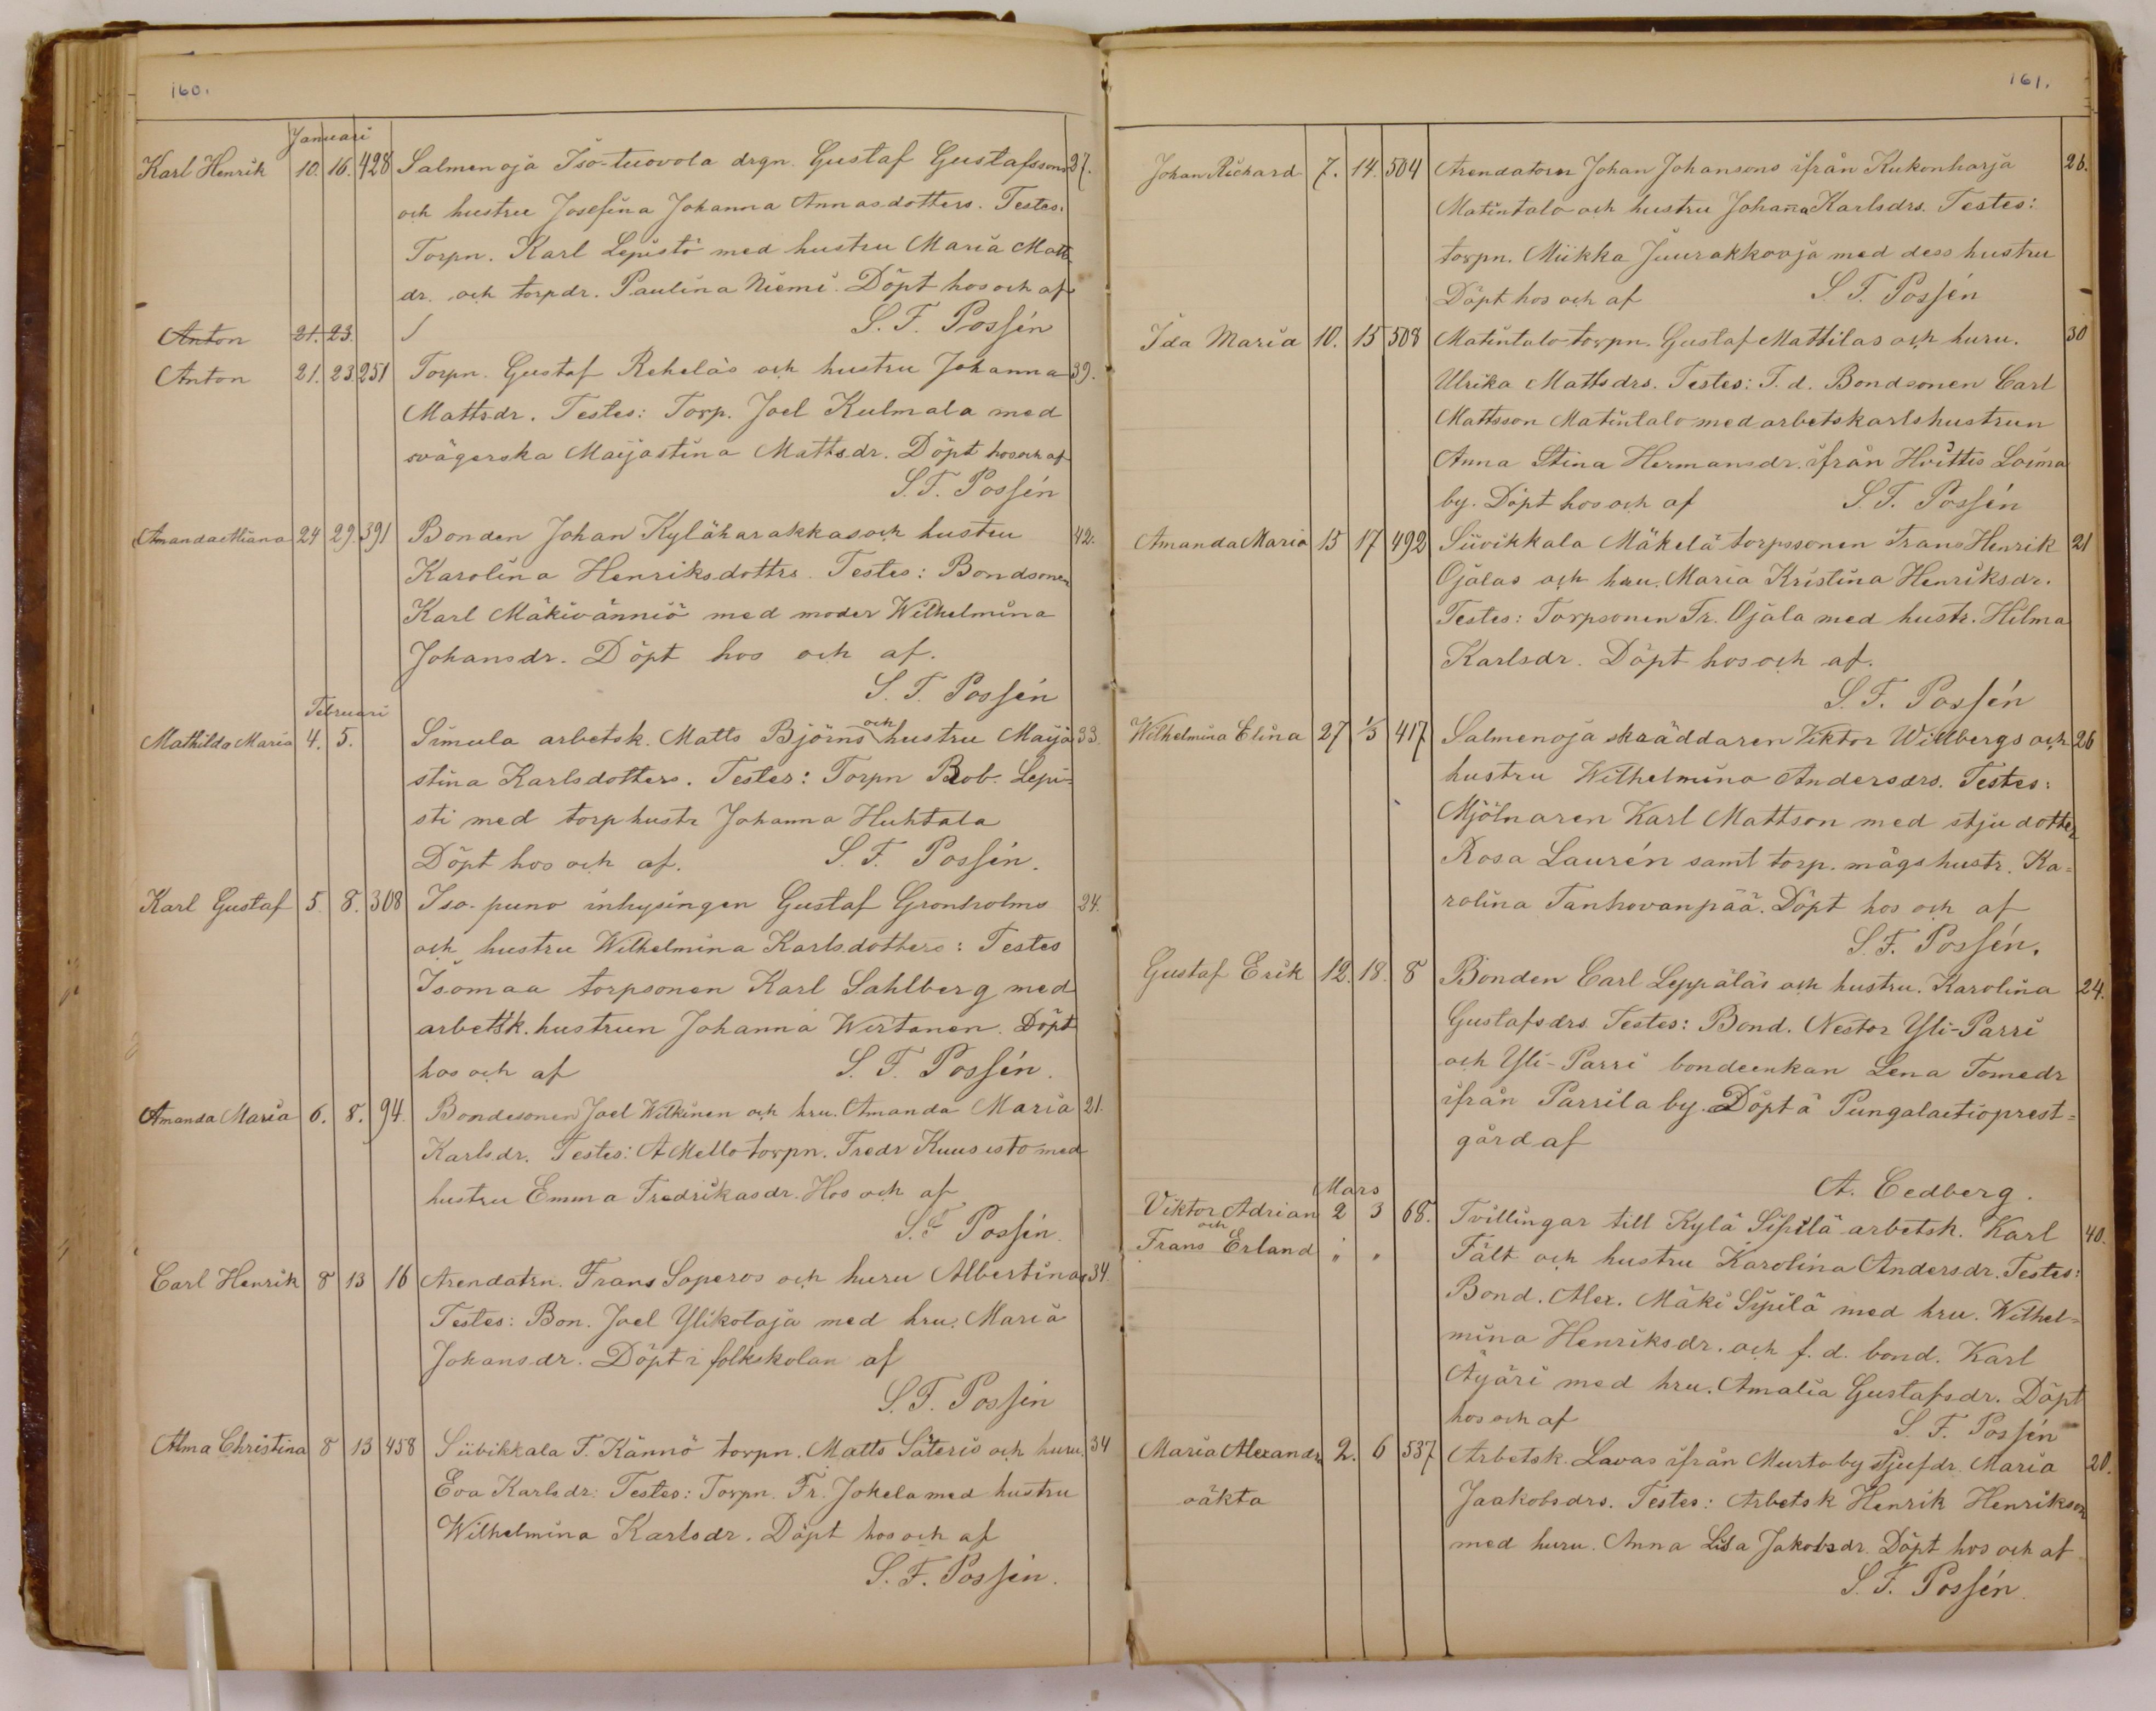 160.
Januari
Karl Henrik 10. 16. 428 Salmenoja Iso-tuovola drgn. Gustaf Gustafssons 27.
och hustru Josefina Johanna Annasdotters. Testes.
Torpn. Karl Lepistö med hustru Maria Matts
dr. och torpdr. Paulina Niemi. Döpt hos och af
Anton 21. 23. S. F. Possén
Anton 21. 23. 251 Torpn. Gustaf Reheläs och hustru Johanna 39.
Mattsdr. Testes: Torp. Joel Kulmala med
svägerska Maijastina Mattsdr. Döpt hos och af
S. F. Possén
Amanda Miana 24 29. 391 Bonden Johan Kyläharakkas och hustru 42.
Karolina Henriksdottrs. Testes: Bondsonen
Karl Mäkivänniö med moder Wilhelmina
Johansdr. Döpt hos och af.
S. F. Possén
Februari
Mathilda Maria 4. 5. Simula arbetsk. Matts Björns och hustru Maija 33.
stina Karlsdotters. Testes: Torpn Rob. Lepi-
sti med torphustr Johanna Huhtala
Döpt hos och af. S. F. Possén.
Karl Gustaf 5. 8. 308 Iso-puno inhysingen Gustaf Gronholms 24.
och hustru Wilhelmina Karlsdotters: Testes
Isomaa torpsonen Karl Sahlberg med
arbetsk. hustrun Johanna Wirtanen. Döpt
hos och af S. F. Possén.
Amanda Maria 6. 8. 94. Bondesonen Joel Wilkinen och hru. Amanda Maria 21.
Karlsdr. Testes: A Mello torpn. Fredr Kuusisto med
hustru Emma Fredrikasdr. Hos och af
S. F. Possén.
Carl Henrik 8 13 16 Arendatrn. Frans Soperos och huru Albertinas 34.
Testes: Bon. Joel Ylikotaja med hru. Maria
Johansdr. Döpt i folkskolan af
S. F. Possén
Alma Christina 8 13 458 Siivikkala T. Kännö torpn. Matts Säteris och huru. 34
Eva Karlsdr. Testes: Torpn. Fr. Jokela med hustru
Wilhelmina Karlsdr. Döpt hos och af
S. F. Possén.
161.
Johan Richard 7. 14. 504 Arendatorn Johan Johansons ifrån Kukonharja 26.
Matintalo och hustru Johana Karlsdrs. Testes:
torpn. Miikka Juurakkoaja med dess hustru
Döpt hos och af S. F. Possén
Ida Maria 10. 15 508 Matintalo torpn. Gustaf Mattilas och huru. 30
Ulrika Mattsdrs. Testes: F. d. Bondsonen Carl
Mattsson Matintalo med arbetskarlshustrun
Anna Stina Hermansdr. ifrån Hvittis Loima
by. Döpt hos och af S. F. Possén
Amanda Maria 15 17 492 Siivikkala Mäkelä torpssonen Frans Henrik 21
Ojalas och hru. Maria Kristina Henriksdr.
Testes: Torpsonen Fr. Ojala med hustr. Hilma
Karlsdr. Döpt hos och af.
S. F. Possén
Wilhelmina Elina 27 1/3 417 Salmenoja skräddaren Viktor Willbergs och 26
hustru Wilhelmina Andersdrs. Testes:
Mjölnaren Karl Mattson med stjudotter
Rosa Laurén samt torp. mågshustr. Ka-
rolina Tanhovanpää. Döpt hos och af
S. F. Possén.
Gustaf Erik 12. 18. 8 Bonden Carl Leppäläs och hustru. Karolina 24.
Gustafsdrs. Testes: Bond. Nestor Yli-Parri
och Yli-Parri bondeenkan Lena Tomedr
ifrån Parrila by. Döpt å Pungalaitioprest-
gård af
A. Cedberg.
Mars
Viktor Adrian 2 3 68. Tvillingar till Kylä Sipilä arbetsk. Karl 40.
och
Frans Erland " " Fält och hustru Karolina Andersdr. Testes:
Bond. Alex. Mäki Sipilä med hru. Wilhel-
mina Henriksdr. och f. d. bond. Karl
Äyäri med hru. Amalia Gustafsdr. Döpt
hos och af S. F. Possén
Maria Alexandra 2. 6 537 Arbetsk. Lavas ifrån Murto by stjufdr. Maria 20.
oäkta Jaakobsdrs. Testes: Arbetsk Henrik Henrikson
med huru. Anna Lisa Jakobsdr. Döpt hos och af
S. F. Possén.